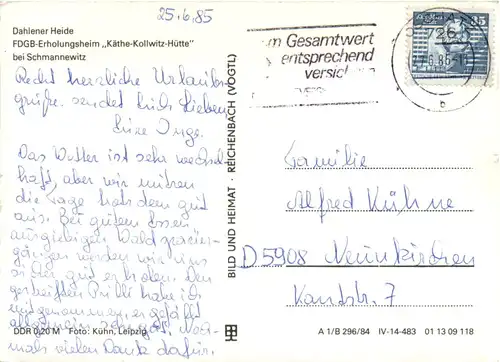 25.6.85
Dahlener Heide
FDGB-Erholungsheim „Käthe-Kollwitz-Hütte"
bei Schmannewitz
Recht herzliche Urlaubs
grüße sendet Euch Lieben
Eure Inge.
Das Wetter ist sehr wechsel
haft, aber wir nützen
die Tage trotzdem gut
aus. Bei gutem Essen
ausgiebigen Waldspazier-
gängen werden wir uns
gut erholen. Den
gestreiften Pulli habe ich
mitgenommen, er gefällt
allgemein sehr gut. Noch-
mals vielen Dank dafür.
DDR 0,20 M Foto: Kuhn, Leipzig
BILD UND HEIMAT · REICHENBACH (VOGTL)
m Gesamtwert
entsprechend
versich
726
.6.85-1
b
35
Familie
Alfred Kühne
D 5908 Neunkirchen
Kantstr. 7
A 1/B 296/84 IV-14-483 01 13 09 118